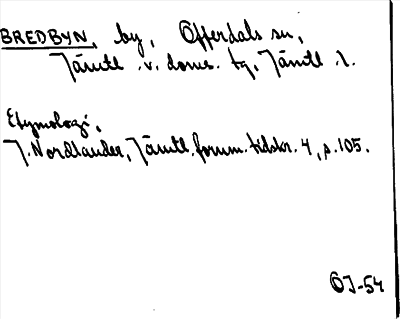 BREDBYN, by, Offerdals sn,
Jämtl. v. doms. tg, Jämtl. l.
Etymologi.
J. Nordlander, Jämtl. fornm. tidskr. 4, s. 105.
OJ-54